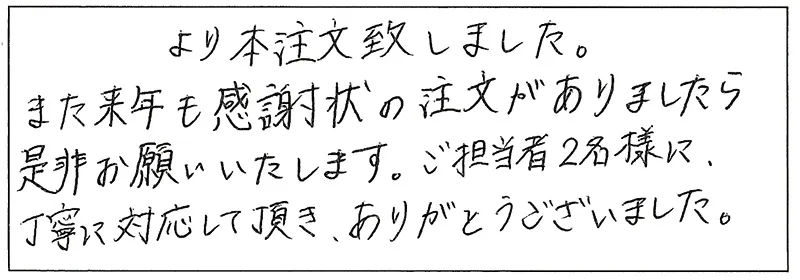 より本注文致しました。
また来年も感謝状の注文がありましたら
是非お願いいたします。ご担当者2名様に、
丁寧に対応して頂き、ありがとうございました。